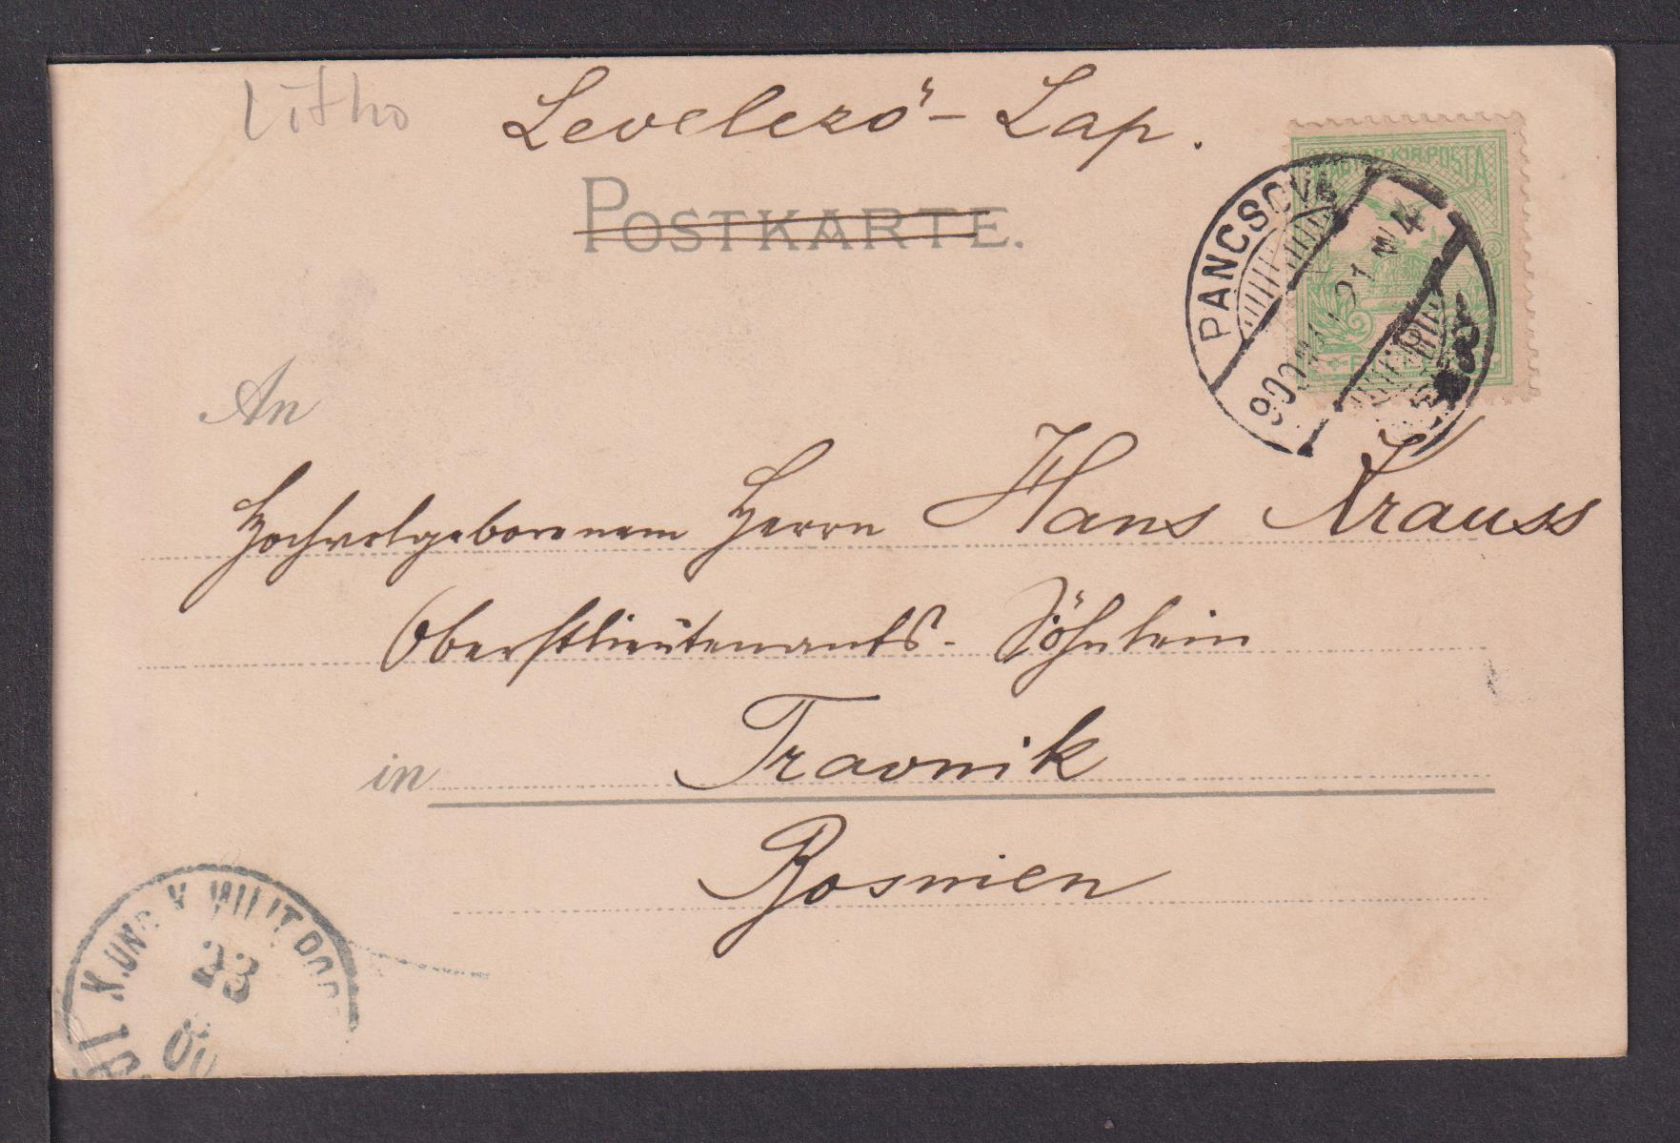 Litho
Levelező-Lap.
POSTKARTE.
MAGYAR KIR. POSTA
PANCSOVA
900
21
N4
An
Hochwolgeborenem Herrn Hans Krauss
Oberstlieutenants-Söhnlein
in Travnik
Bosnien
K. UND K. MILIT. POST
23
00